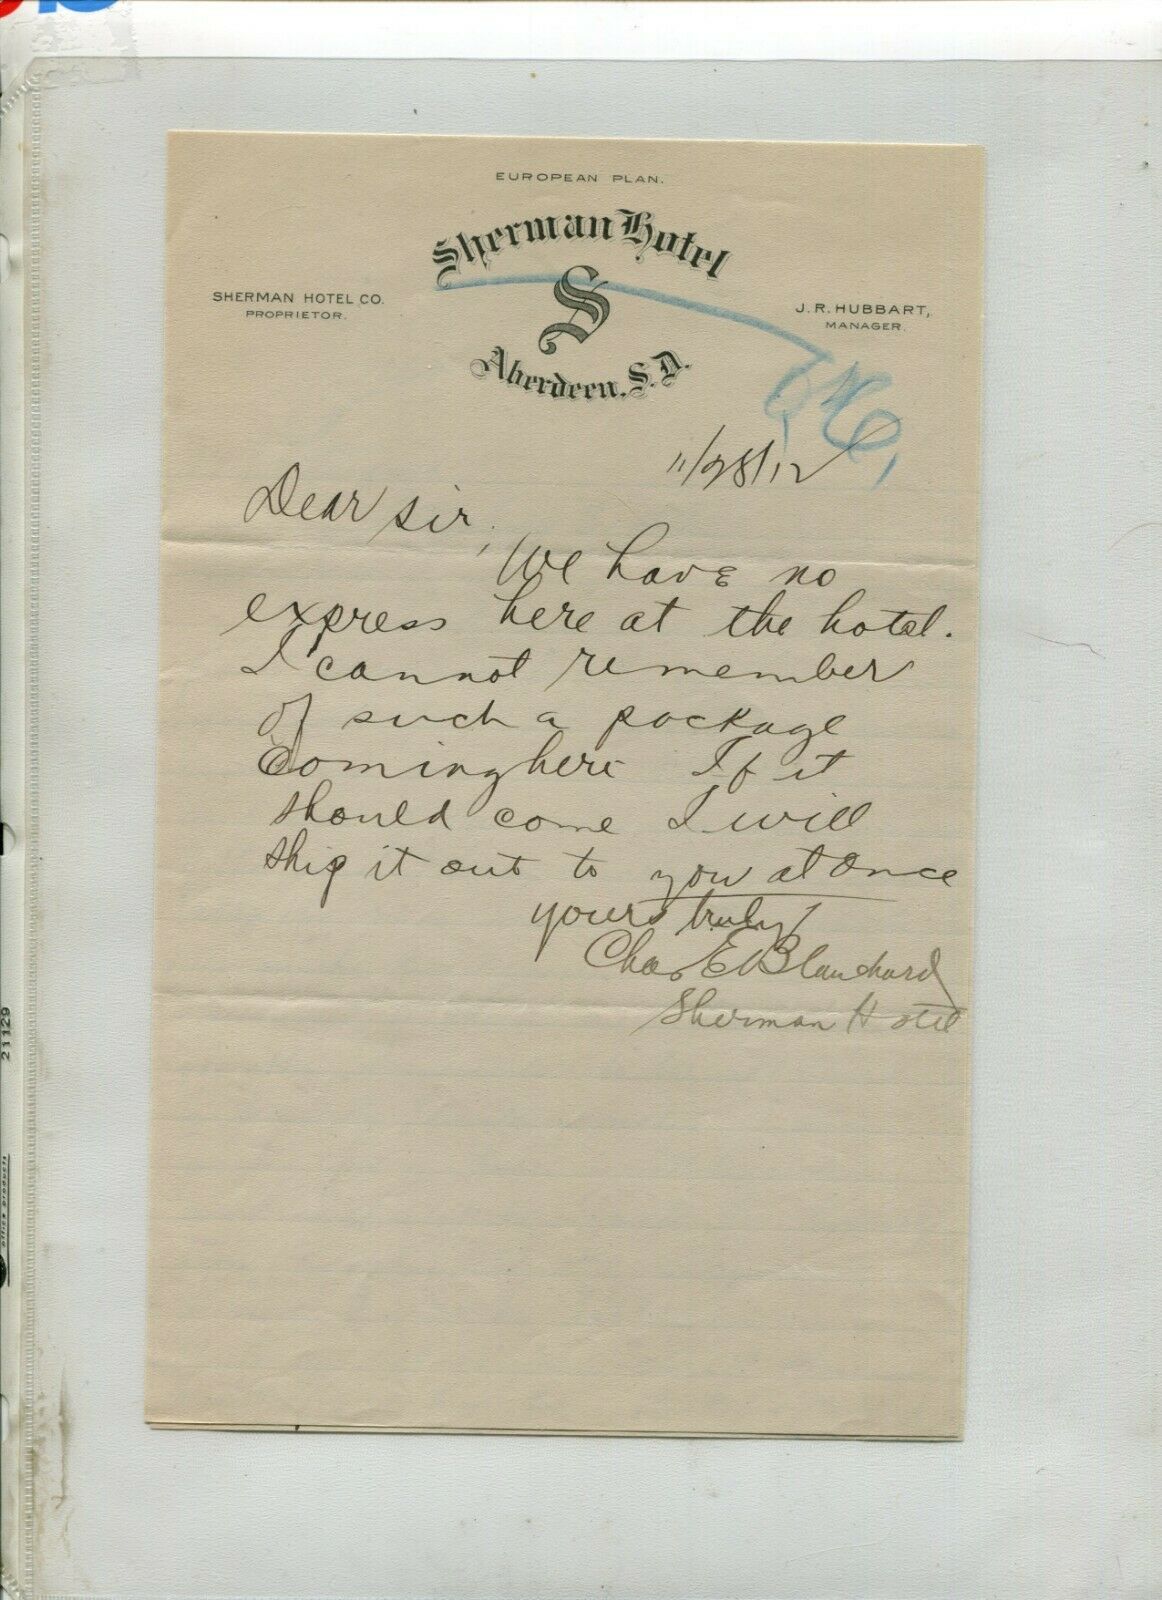 EUROPEAN PLAN.
Sherman Hotel
S
SHERMAN HOTEL CO.
PROPRIETOR.
J. R. HUBBART,
MANAGER.
Aberdeen, S.D.
11/28/12
Dear Sir,
We have no
express here at the hotel.
I cannot remember
of such a package
Coming here If it
should come I will
ship it out to you at once
yours truly
Chas E Blanchard
Sherman Hotel
21129
office products